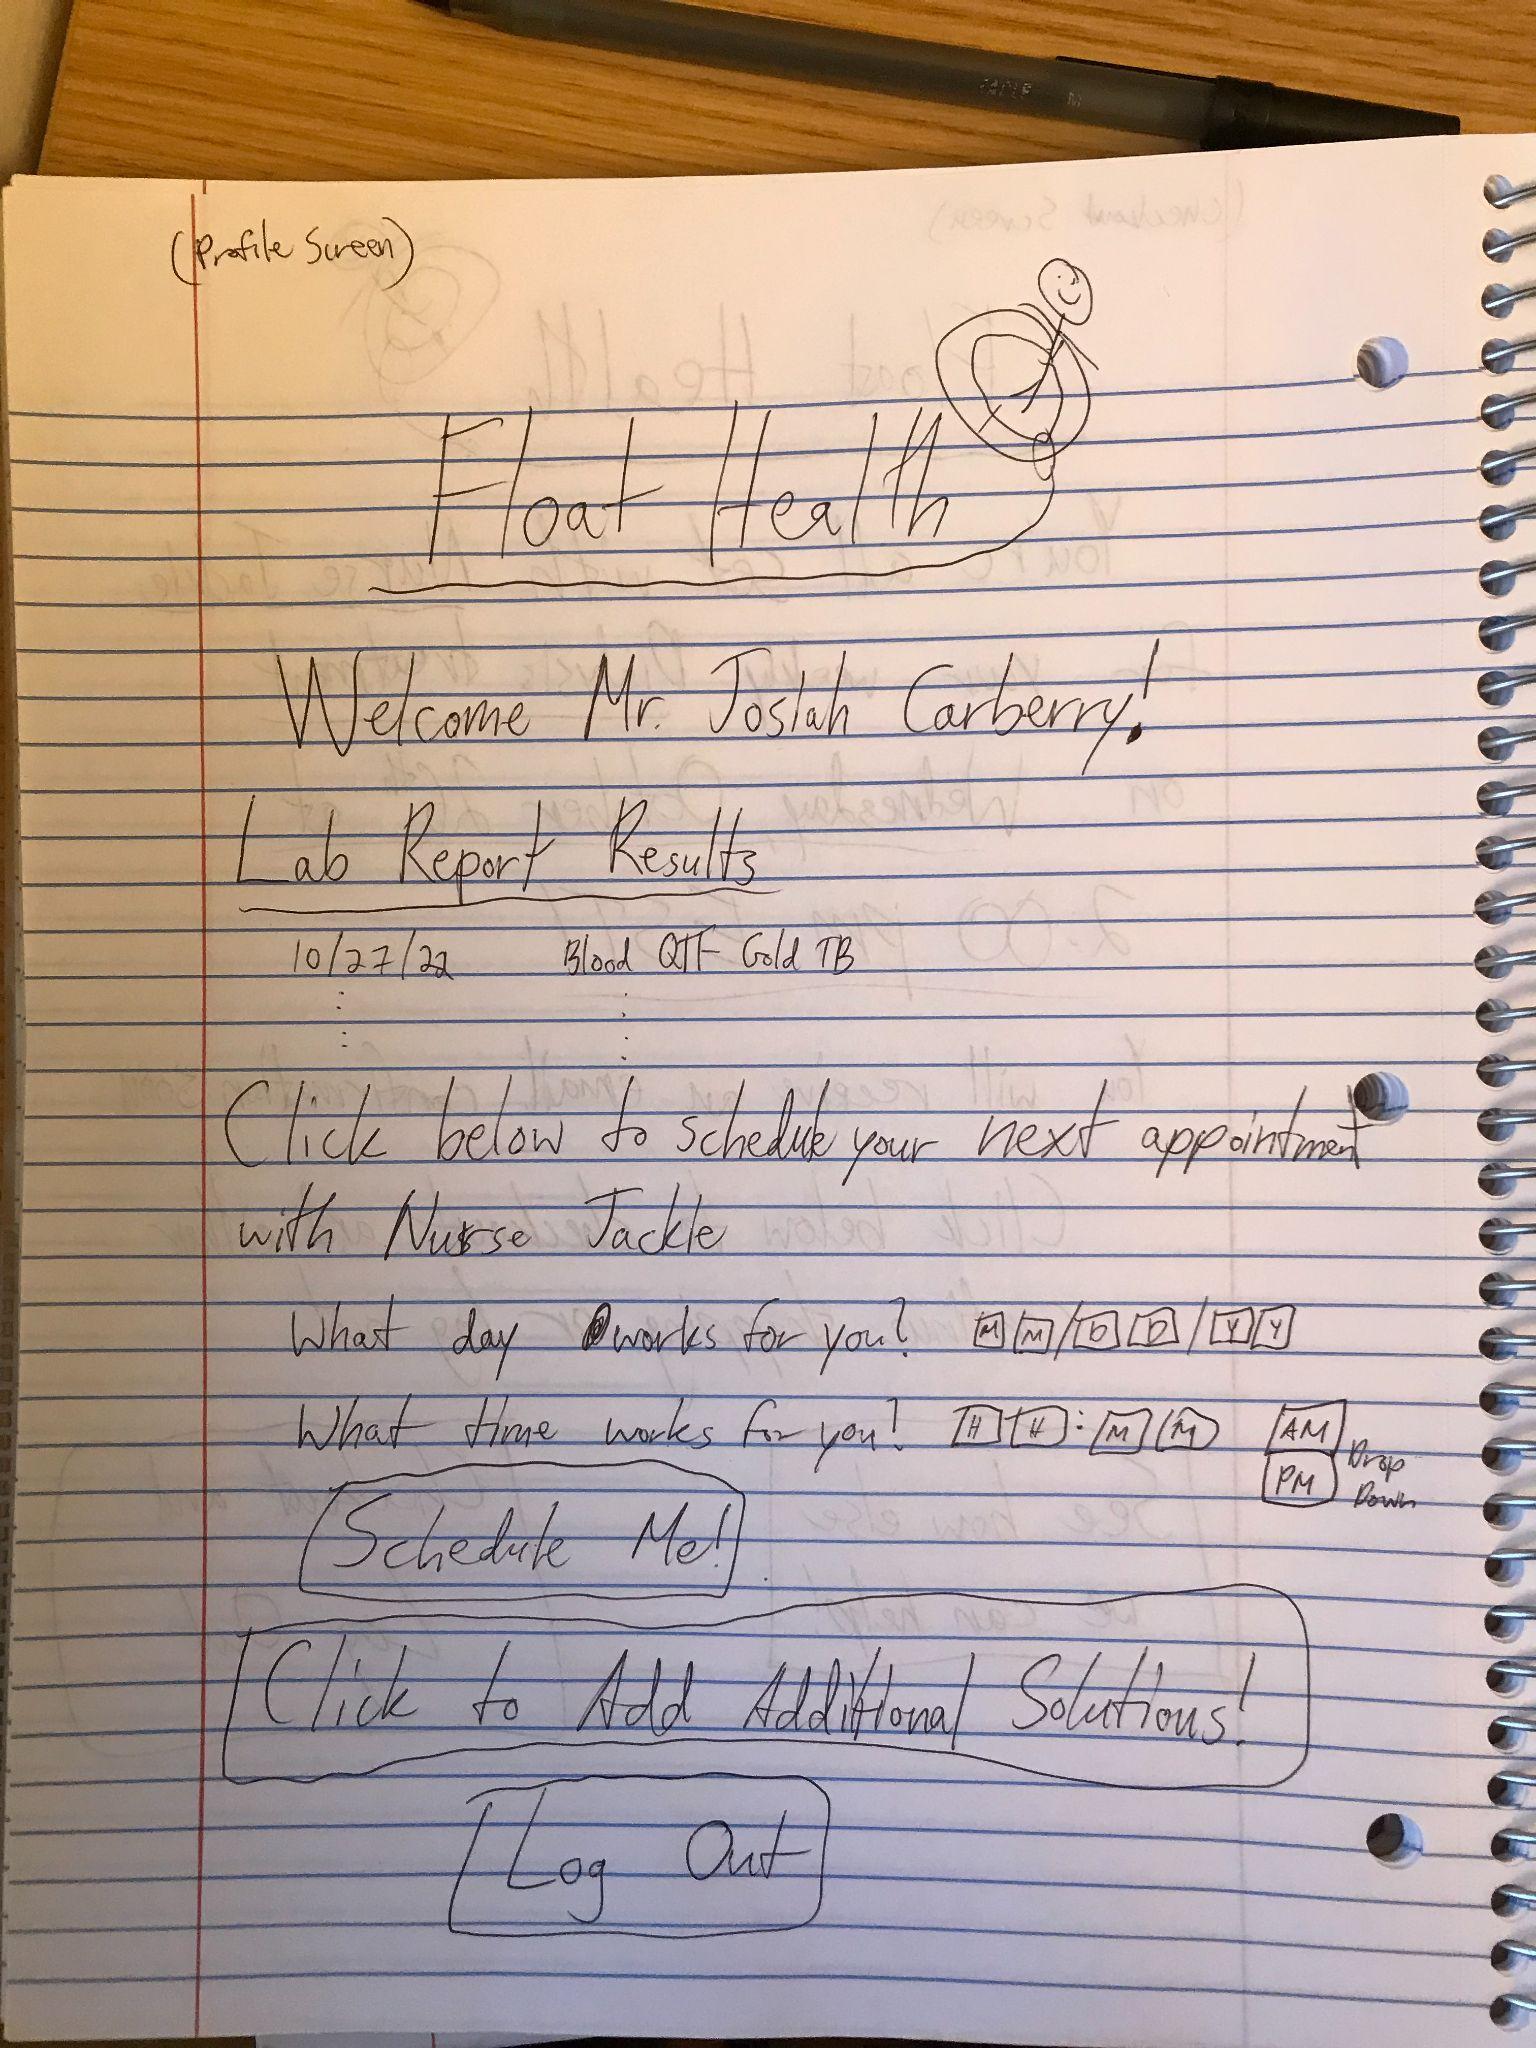 (Profile Screen)
Float Health
Welcome Mr. Josiah Carberry!
Lab Report Results
10/27/22 Blood QTF Gold TB
Click below to schedule your next appointment
with Nurse Jackie
What day works for you? M M / D D / Y Y
What time works for you? H H : M M AM
PM Drop
Down
Schedule Me!
Click to Add Additional Solutions!
Log Out